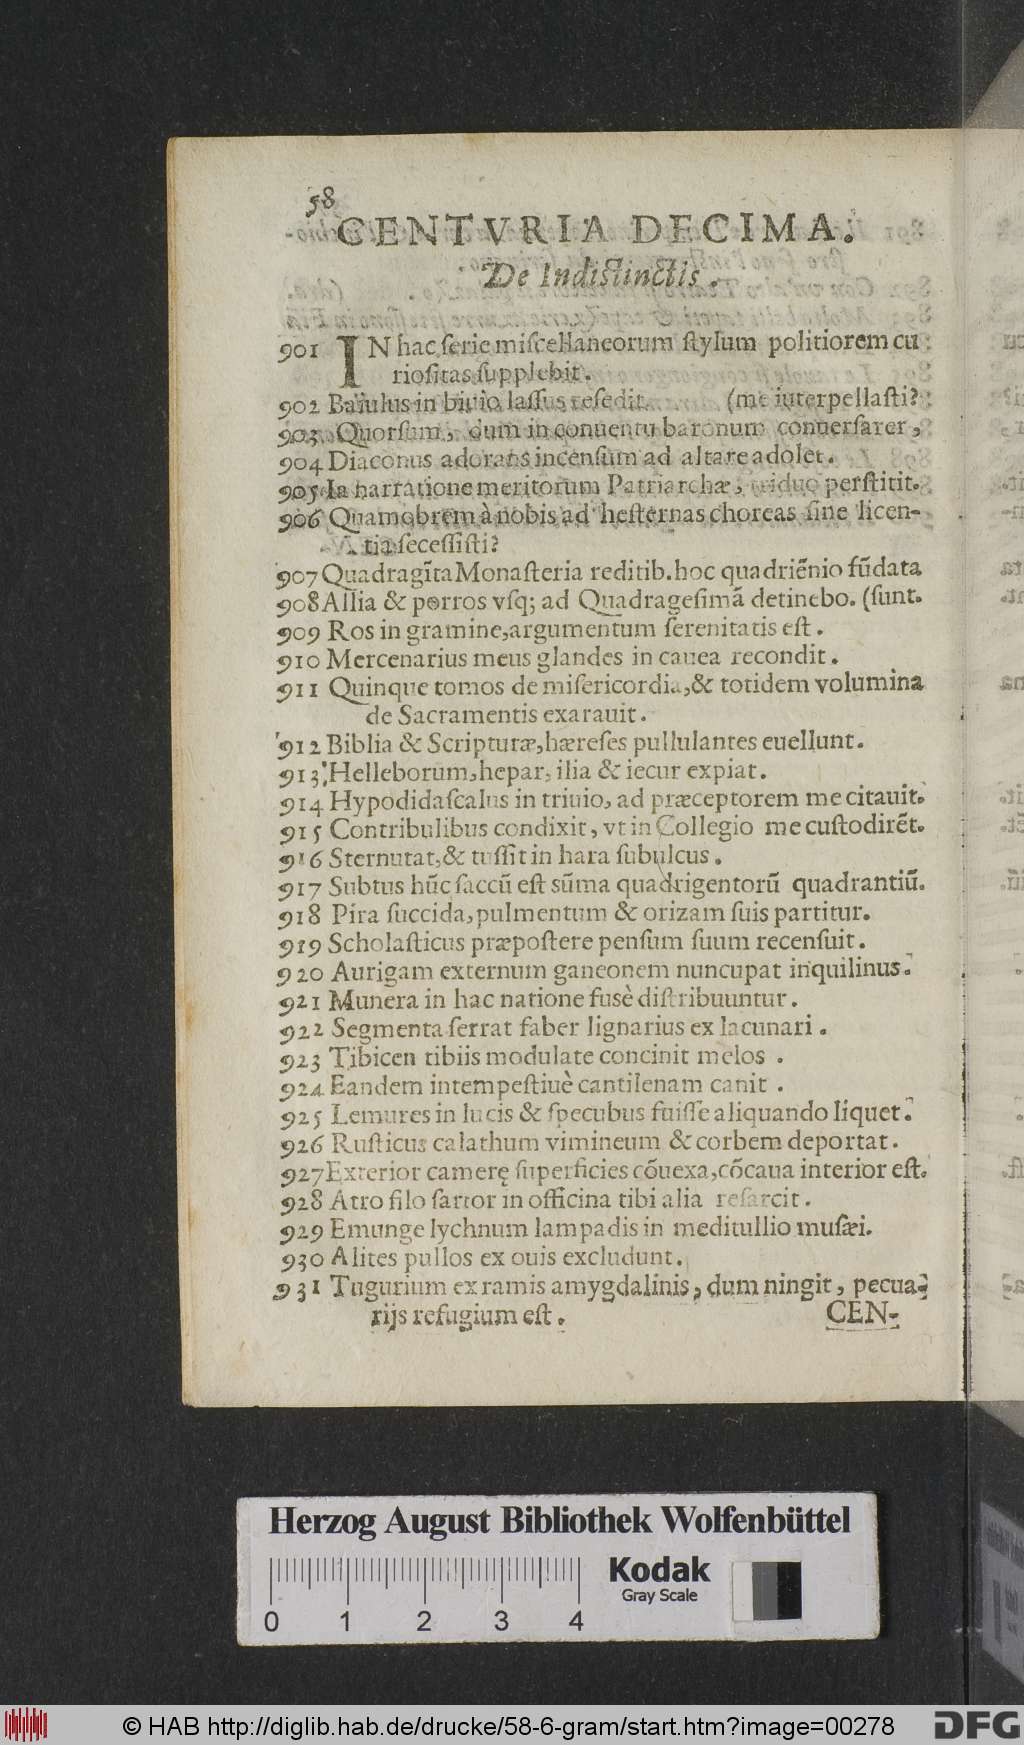 58
CENTVRIA DECIMA.
De Indistinctis.
901 IN hac serie miscellaneorum stylum politiorem cu
riositas supplebit.
902 Baiulus in biuio lassus resedit. (me iuterpellasti?
903 Quorsum, dum in conuentu baronum conuersarer,
904 Diaconus adorans incensum ad altare adolet.
905 In narratione meritorum Patriarchæ, triduo perstitit.
906 Quamobrem à nobis ad hesternas choreas sine licen-
tia secessisti?
907 Quadragīta Monasteria reditib. hoc quadriēnio fūdata
908 Allia & porros vsq; ad Quadragesimā detinebo. (sunt.
909 Ros in gramine, argumentum serenitatis est.
910 Mercenarius meus glandes in cauea recondit.
911 Quinque tomos de misericordia, & totidem volumina
de Sacramentis exarauit.
912 Biblia & Scripturæ, hæreses pullulantes euellunt.
913 Helleborum, hepar, ilia & iecur expiat.
914 Hypodidascalus in triuio, ad præceptorem me citauit.
915 Contribulibus condixit, vt in Collegio me custodirēt.
916 Sternutat, & tussit in hara subulcus.
917 Subtus hūc saccū est sūma quadrigentorū quadrantiū.
918 Pira succida, pulmentum & orizam suis partitur.
919 Scholasticus præpostere pensum suum recensuit.
920 Aurigam externum ganeonem nuncupat inquilinus.
921 Munera in hac natione fusè distribuuntur.
922 Segmenta serrat faber lignarius ex lacunari.
923 Tibicen tibiis modulate concinit melos.
924 Eandem intempestiuè cantilenam canit.
925 Lemures in lucis & specubus fuisse aliquando liquet.
926 Rusticus calathum vimineum & corbem deportat.
927 Exterior camerę superficies cōuexa, cōcaua interior est.
928 Atro filo sartor in officina tibialia resarcit.
929 Emunge lychnum lampadis in meditullio musæi.
930 Alites pullos ex ouis excludunt.
931 Tugurium ex ramis amygdalinis, dum ningit, pecua-
rijs refugium est. CEN-
Herzog August Bibliothek Wolfenbüttel
Kodak
Gray Scale
0 1 2 3 4
© HAB http://diglib.hab.de/drucke/58-6-gram/start.htm?image=00278
DFG